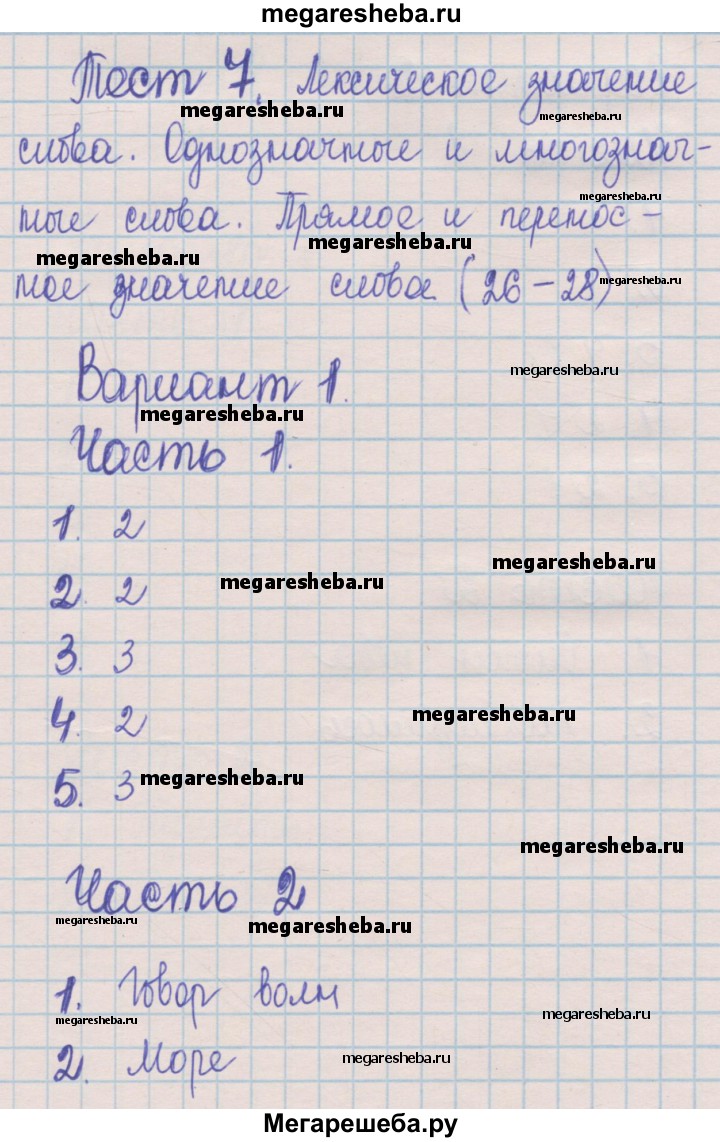 megaresheba.ru
Тест 7. Лексическое значение
megaresheba.ru
megaresheba.ru
слова. Однозначные и многознач-
megaresheba.ru
ные слова. Прямое и перенос-
megaresheba.ru
megaresheba.ru
ное значение слова (26-28)
megaresheba.ru
Вариант 1.
megaresheba.ru
megaresheba.ru
Часть 1.
1. 2
megaresheba.ru
2. 2
megaresheba.ru
3. 3
4. 2
megaresheba.ru
5. 3
megaresheba.ru
megaresheba.ru
Часть 2
megaresheba.ru
megaresheba.ru
1. Говор волн
megaresheba.ru
megaresheba.ru
2. Море
megaresheba.ru
Мегарешеба.ру